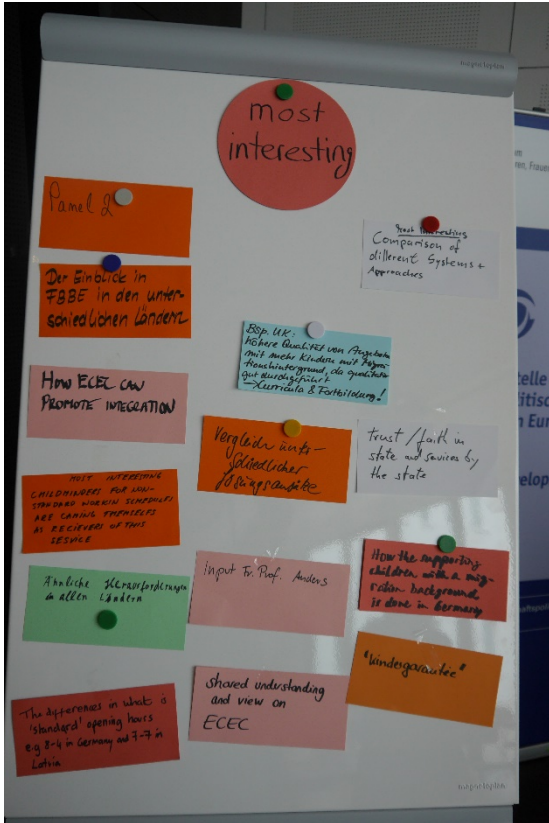 magnetoplan
most
interesting
Panel 2
Der Einblick in
FBBE in den unter-
schiedlichen Ländern
How ECEC can
promote integration
MOST INTERESTING
CHILDMINDERS FOR NON-
STANDARD WORKIN SCHEDULES
ARE CAMING THEMSELFS
AS RECIEVERS OF THIS
SERVICE
Ähnliche Herausforderungen
in allen Ländern
The differences in what is
'standard' opening hours
e.g 8-4 in Germany and 7-7 in
Latvia
Bsp. UK:
höhere Qualität von Angeboten
mit mehr Kindern mit Migra-
tionshintergrund, da qualitativ
gut durchgeführt
Curricula & Fortbildung!
Vergleich unter-
schiedlicher
Lösungsansätze
Input Fr. Prof. Anders
shared understanding
and view on
ECEC
most interesting
Comparison of
different Systems +
Approaches
trust / faith in
state and services by
the state
How the supporting
children with a mig-
ration background
is done in Germany
"Kindergarantie"
magnetoplan
ren, Frauen
telle
litisc
n Eur
develop